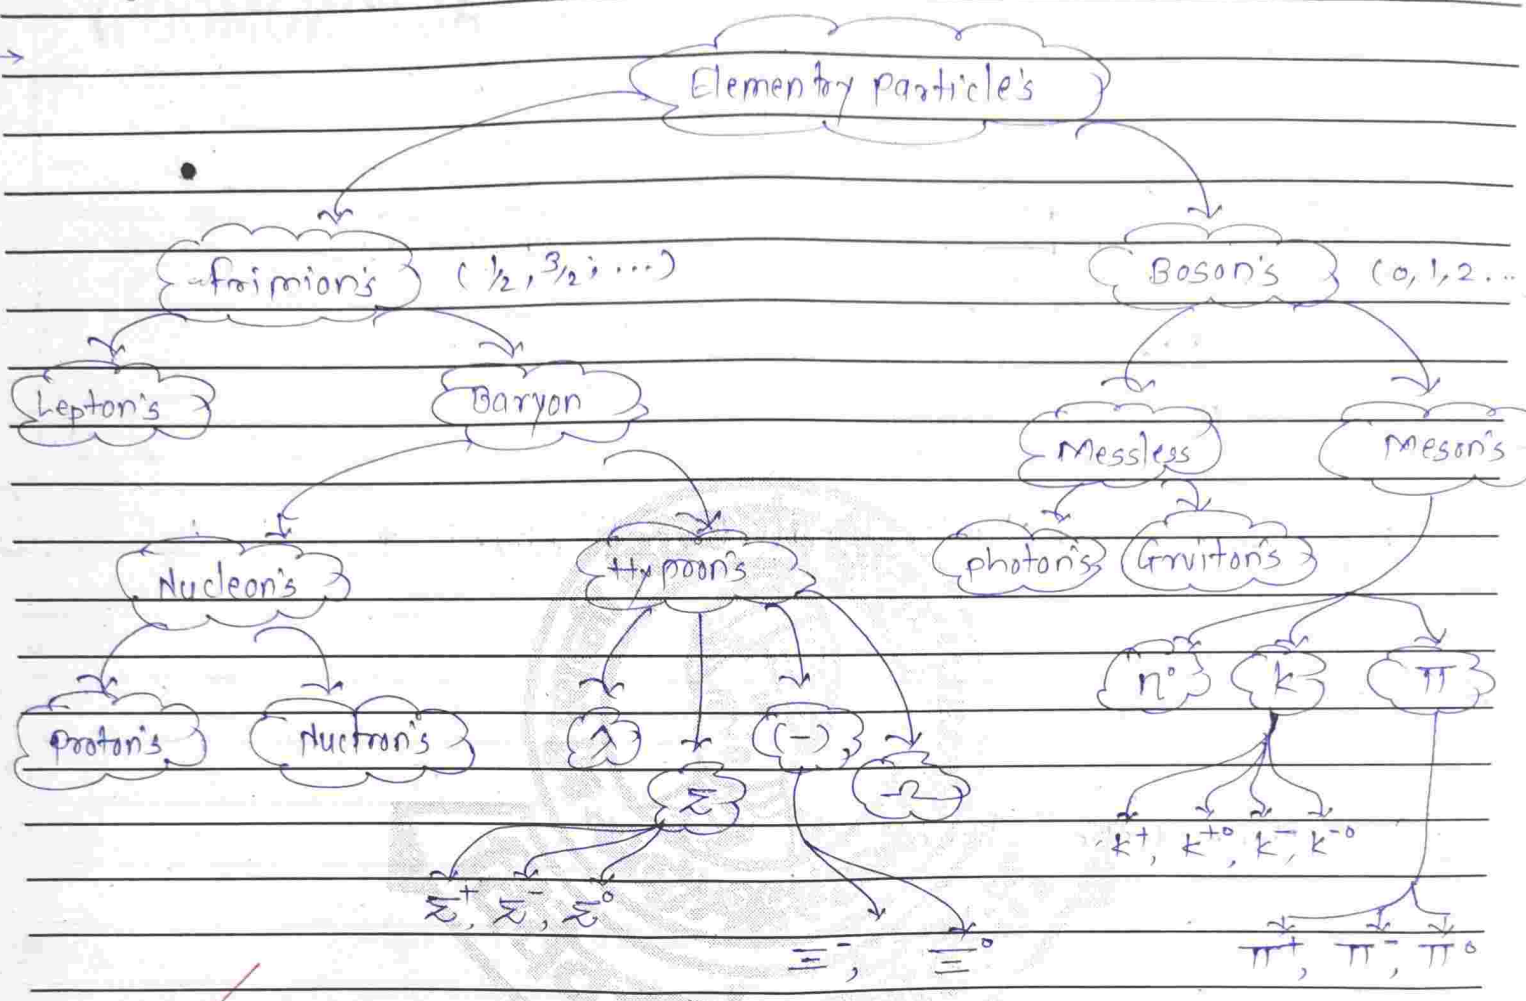 Elementry Particle's
frimion's (1/2, 3/2, ...) Boson's (0, 1, 2 ...
Lepton's Baryon Messless Meson's
Nucleon's Hyproon's photon's Gruiton's
n° k π
Proton's Nuctron's λ (-) Σ Ω
k⁺, k⁺⁰, k⁻, k⁻⁰
Σ⁺, Σ⁻, Σ⁰
Ξ⁻, Ξ⁰ π⁺, π⁻, π⁰